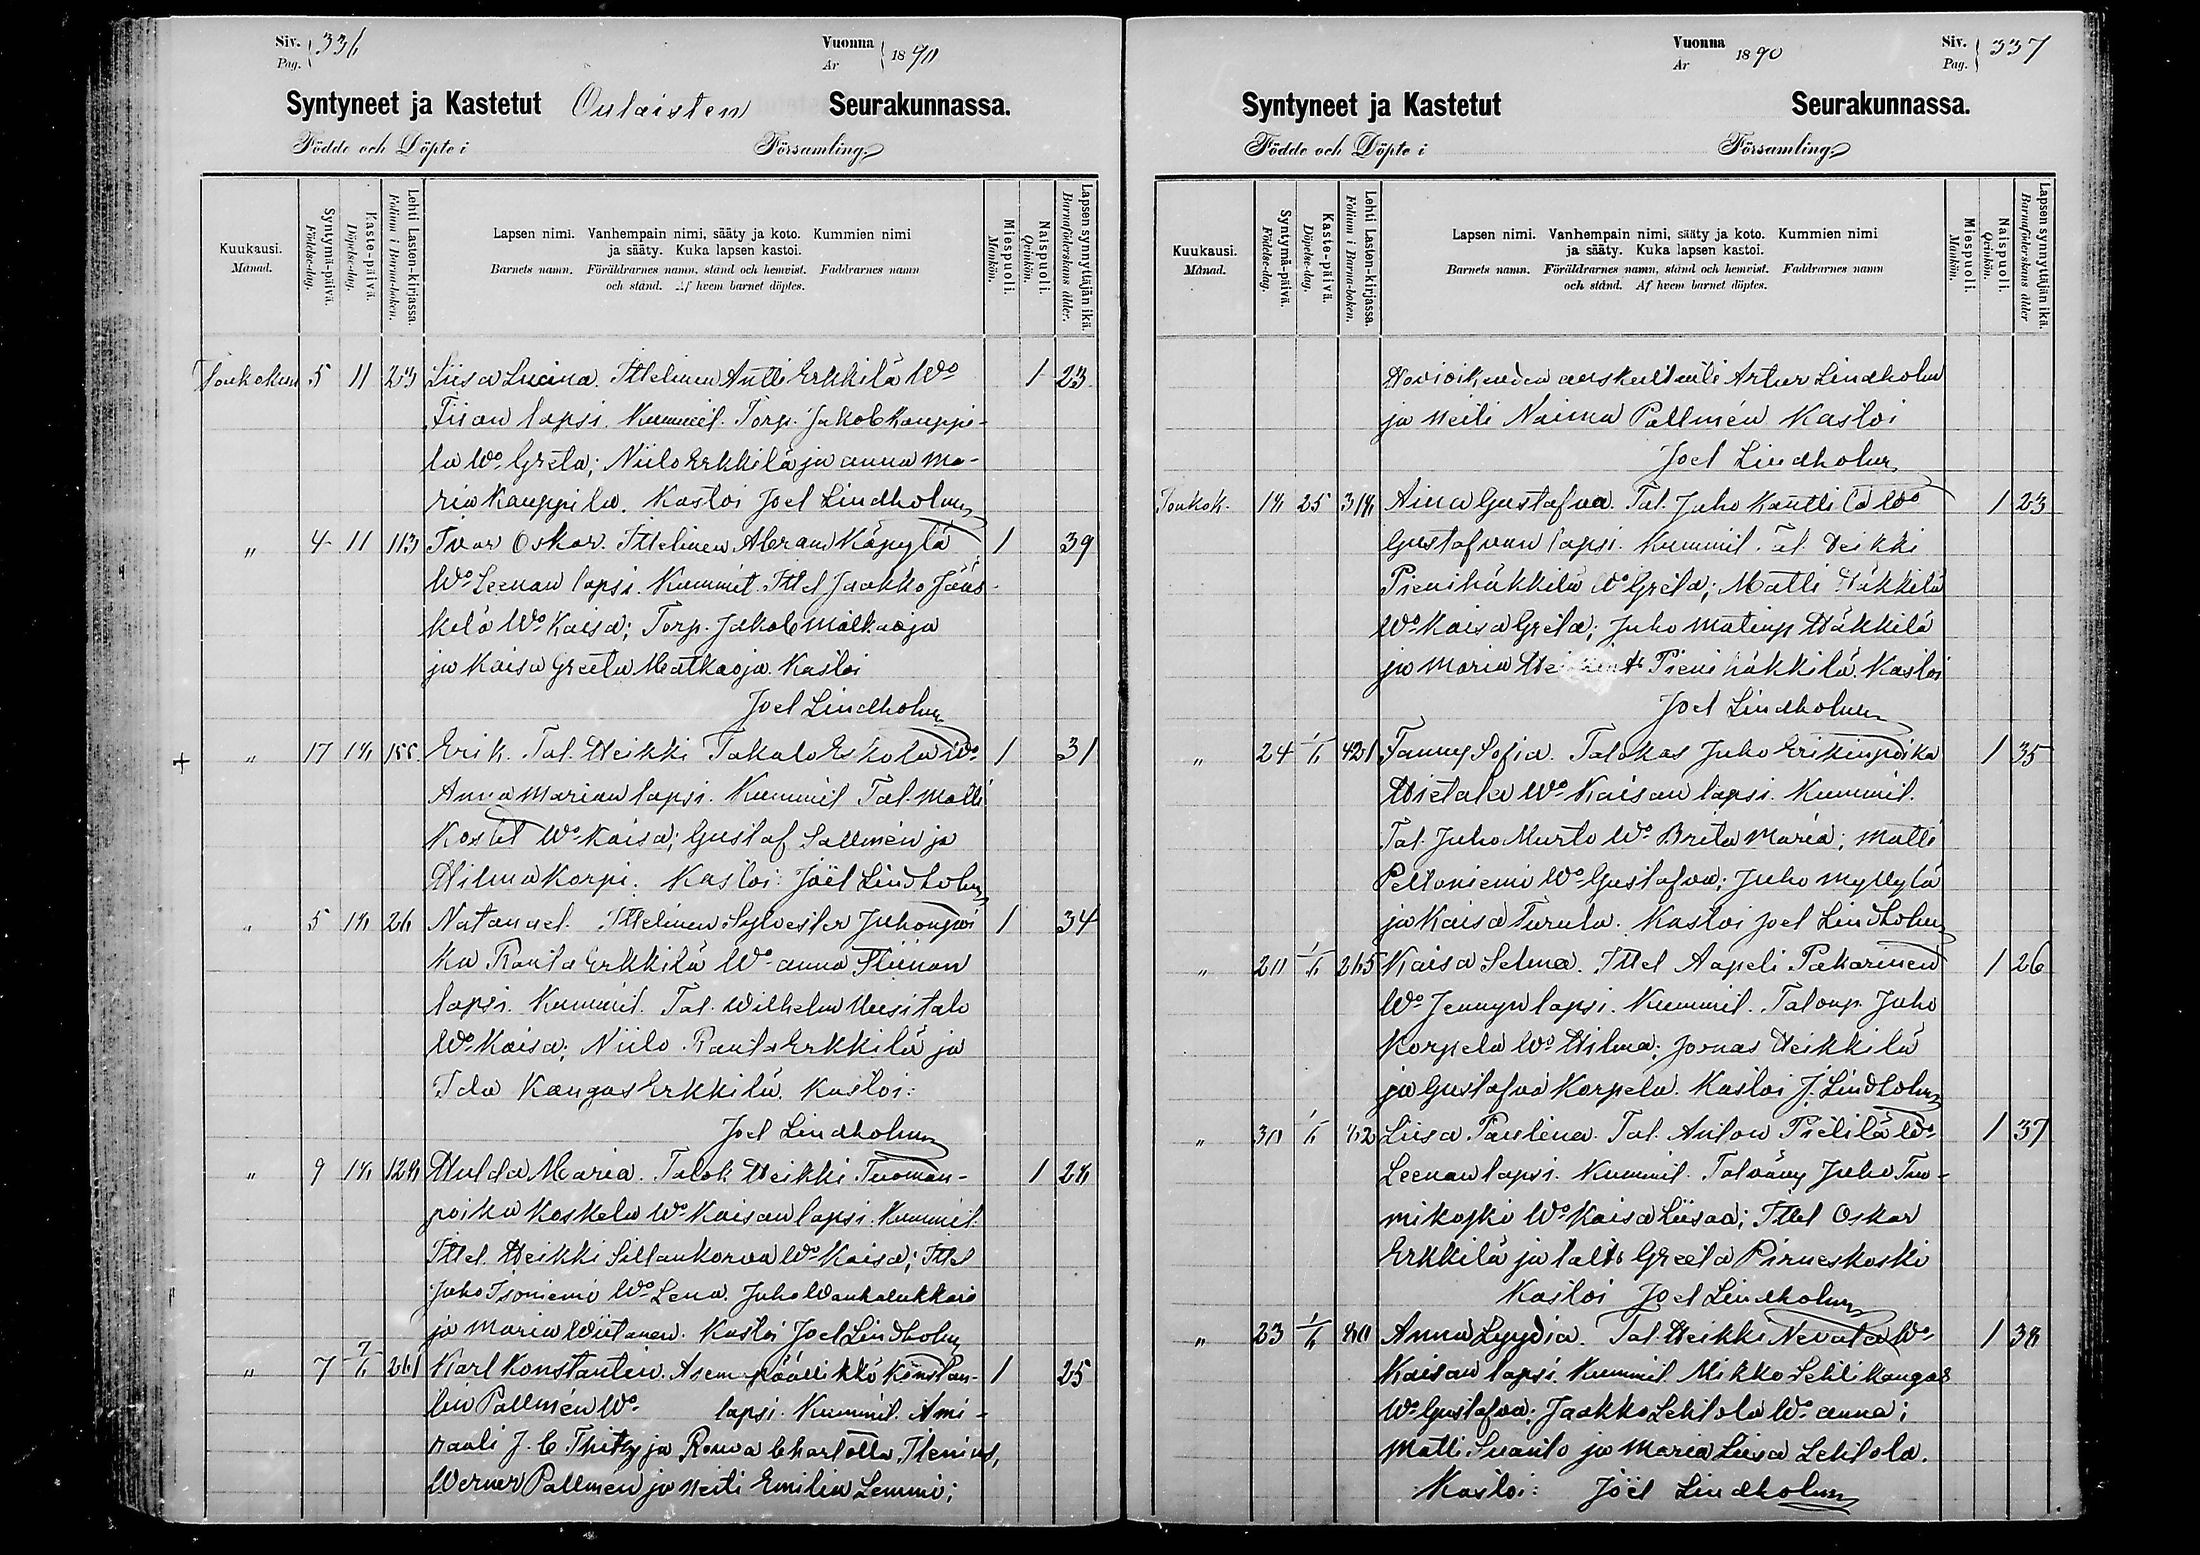 Siv. 336
Pag.
Vuonna 1890
År
Syntyneet ja Kastetut Oulaisten Seurakunnassa.
Födde och Döpte i Församling.
Kuukausi.
Månad.
Syntymä-päivä.
Födelse-dag.
Kaste-päivä.
Döpelse-dag.
Lehti Lasten-kirjassa.
Folium i Barna-boken.
Lapsen nimi. Vanhempain nimi, sääty ja koto. Kummien nimi
ja sääty. Kuka lapsen kastoi.
Barnets namn. Föräldrarnes namn, stånd och hemvist. Faddrarnes namn
och stånd. Af hvem barnet döptes.
Miespuoli.
Mankön.
Naispuoli.
Qvinkön.
Lapsen synnyttäjän ikä.
Barnaföderskans ålder.
Toukokuu 5 11 23 Liisa Lucina. Ittelinen Antti Erkkilä Wo 1 23
Fiian lapsi. Kummit. Torp. Jakob Kauppi-
la Wo Greta; Niilo Erkkilä ja Anna Ma-
ria Kauppila. Kastoi Joel Lindholm
" 4 11 113 Ivar Oskar. Ittelinen Abram Käpylä 1 39
Wo Leenan lapsi. Kummit. Ittel Jaakko Jääs-
kelä Wo Kaisa; Torp. Jakob Matkaoja
ja Kaisa Greeta Matkaoja. Kastoi
Joel Lindholm
+ " 17 18 Erik. Tal. Heikki Takalo Eskola Wo 1 31
Anna Marian lapsi. Kummit Tal. Matti
Kostet Wo Kaisa; Gustaf Sallmén ja
Hilma Korpi. Kastoi: Joël Lindholm
" 5 18 26 Natanael. Ittelinen Sylvester Juhonpoi 1 34
ka Ranta Erkkilä Wo Anna Fliinan
lapsi. Kummit. Tal. Wilhelm Uusitalo
Wo Kaisa; Niilo Ranta Erkkilä ja
Ida Kangas Erkkilä. Kastoi:
Joel Lindholm
" 9 18 128 Hulda Maria. Talok Heikki Tuoman- 1 28
poika Koskela Wo Kaisan lapsi. Kummit.
Ittel. Heikki Sillankorva Wo Kaisa; Ittel
Juho Isoniemi Wo Lena. Juho
ja Maria Wiitanen. Kastoi Joel Lindholm
" 7 7/6 261 Karl Konstantin. Asemapäällikkö Konstan- 1 25
tin Pallmén Wo lapsi. Kummit. Ami-
raali J. C. ja Rouva Charlotta Stenius,
Werner Pallmén ja Neiti Emilia Lemmi;
Vuonna 1890
År
Siv. 337
Pag.
Syntyneet ja Kastetut Seurakunnassa.
Födde och Döpte i Församling.
Kuukausi.
Månad.
Syntymä-päivä.
Födelse-dag.
Kaste-päivä.
Döpelse-dag.
Lehti Lasten-kirjassa.
Folium i Barna-boken.
Lapsen nimi. Vanhempain nimi, sääty ja koto. Kummien nimi
ja sääty. Kuka lapsen kastoi.
Barnets namn. Föräldrarnes namn, stånd och hemvist. Faddrarnes namn
och stånd. Af hvem barnet döptes.
Miespuoli.
Mankön.
Naispuoli.
Qvinkön.
Lapsen synnyttäjän ikä.
Barnaföderskans ålder
Hovioikeuden auskultantti Artur Lindholm
ja Neiti Naima Pallmén Kastoi
Joel Lindholm
Toukok. 18 25 318 Aina Gustafva. Tal. Juho Kanttila Wo 1 23
Gustafvan lapsi. Kummit. Tal. Heikki
Pienihäkkilä Wo Greta; Matti Häkkilä
Wo Kaisa Greta; Juho Matinp Häkkilä
ja Maria Pienihäkkilä. Kastoi
Joel Lindholm
" 24 1/6 421 Fanny Sofia. Talokas Juho Erikinpoika 1 35
Hietala Wo Kaisan lapsi. Kummit.
Tal. Juho Murto Wo Brita Maria; Matti
Peltoniemi Wo Gustafva; Juho Myllylä
ja Kaisa Turula. Kastoi Joel Lindholm
" 20 1/6 265 Kaisa Selma. Ittel Aapeli Pakarinen 1 26
Wo Jennyn lapsi. Kummit. Talonp. Juho
Korpela Wo Hilma; Joonas Heikkilä
ja Gustafva Korpela. Kastoi J. Lindholm
" 30 1/6 Liisa Paulina. Tal. Anton Pietilä Wo 1 37
Leenan lapsi. Kummit. Talvävy Juho Tuo-
mikojko Wo Kaisa Liisaa; Ittel Oskar
Erkkilä ja Greeta Pirneskoski
Kastoi Joel Lindholm
" 23 1/6 80 Anna Lyydia. Tal. Heikki Nevala Wo 1 38
Kaisan lapsi. Kummit. Mikko Lehtikangas
Wo Gustafva; Jaakko Lehtola Wo Anna;
Matti Suanto ja Maria Liisa Lehtola.
Kastoi: Joël Lindholm